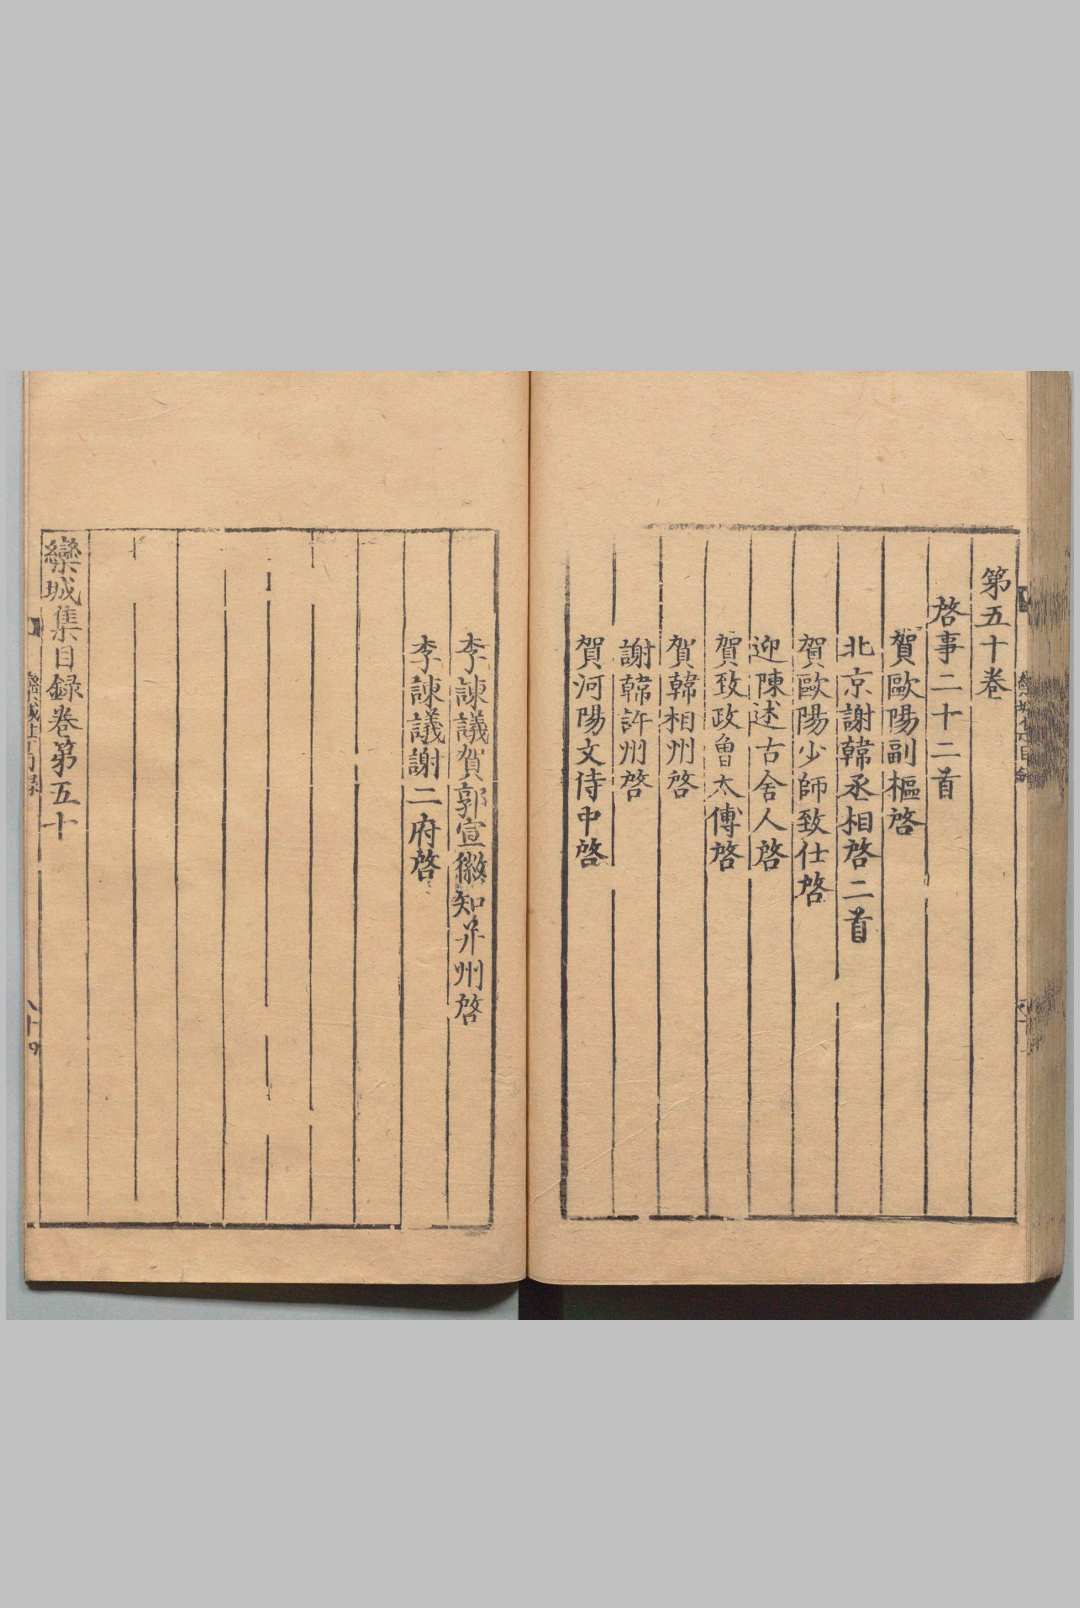 第五十卷
啓事二十二首
賀歐陽副樞啓
北京謝韓丞相啓二首
賀歐陽少師致仕啓
迎陳述古舍人啓
賀致政曾太傅啓
賀韓相州啓
謝韓許州啓
賀河陽文侍中啓
李諫議賀郭宣徽知并州啓
李諫議謝二府啓
欒城集目録卷第五十